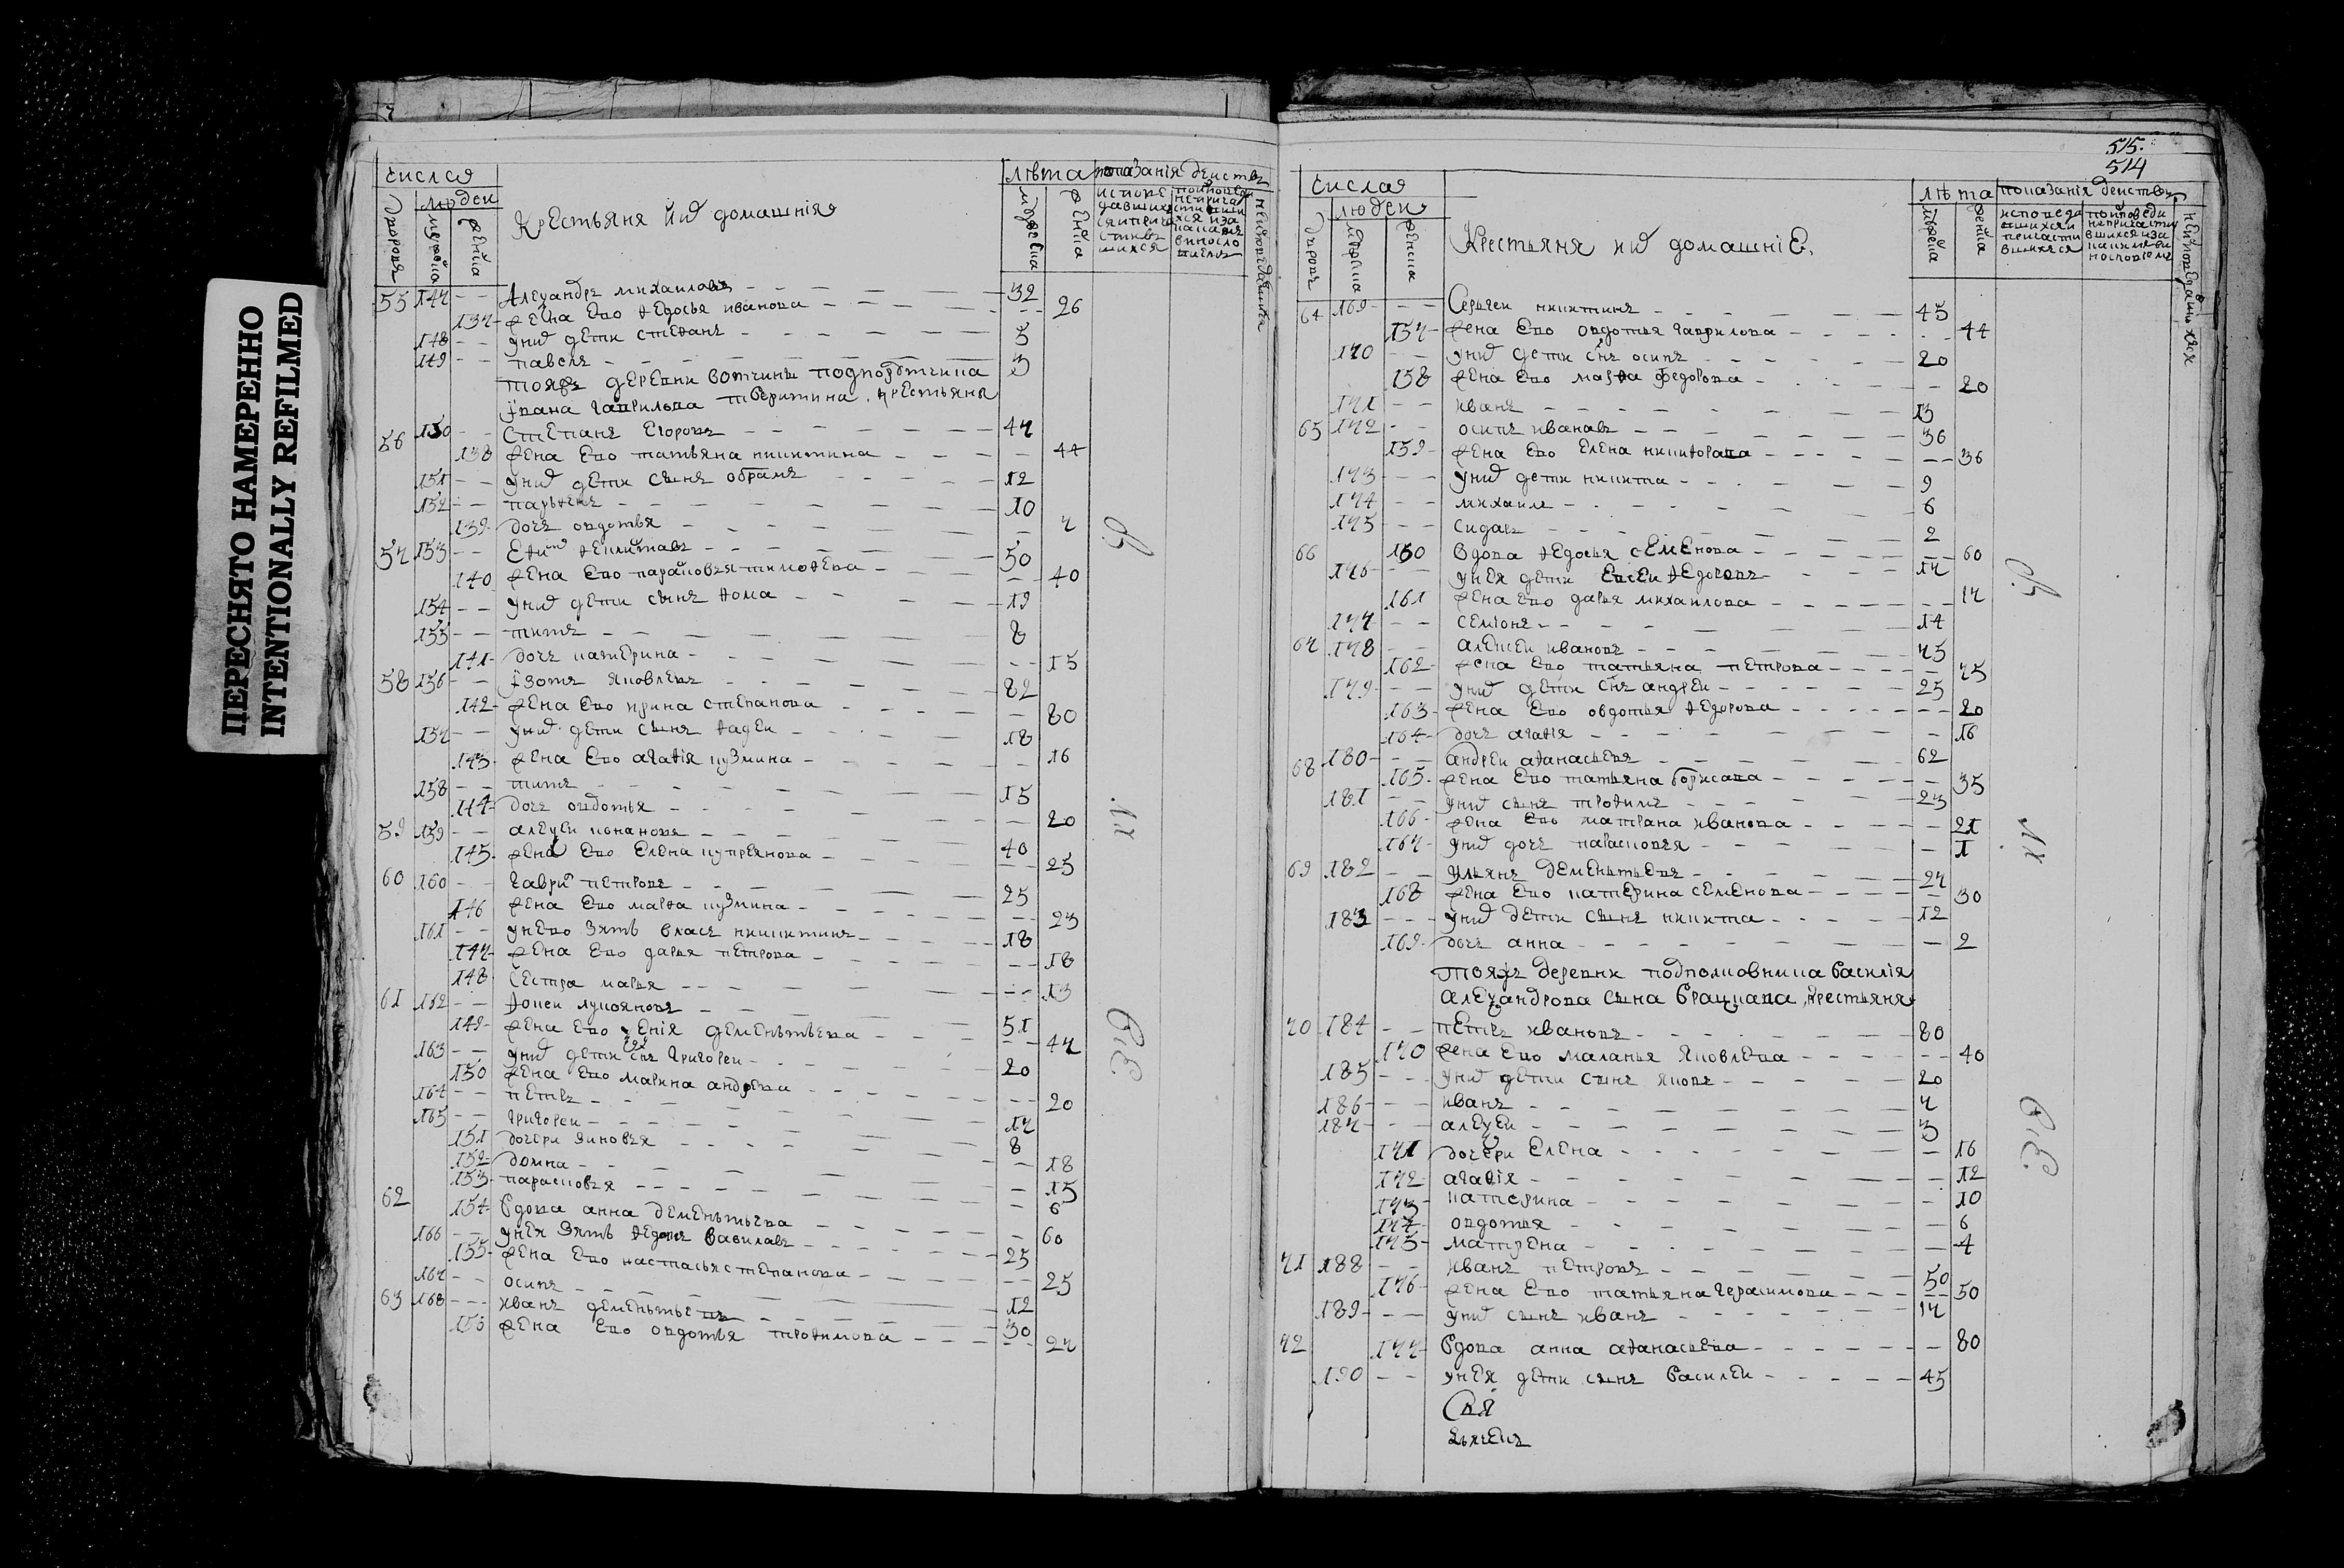 ПЕРЕСНЯТО НАМЕРЕННО
INTENTIONALLY REFILMED
числа
людеи
Крестьяня ихъ домашнія
лѣта показанія деиствъ
55 147 - - Алеѯандръ михаиловъ - - - 32
137 - жена Ево ѳедосья иванова - - - 26
148 - - унихъ дети стеѳанъ - - - 5
149 - - павелъ - - - 3
тояжъ деревни вотчины подпорутчика
Iвана гаврилова тверитина крестьяня
56 150 - - Степанъ Егоровъ - - - 47
138 жена Ево татьяна никитина - - - 44
151 - - унихъ дети сынъ обрамъ - - - 12
152 - - парѳенъ - - - 10
139 - дочь овдотья - - - 7
57 153 - - - - - 50
140 жена Ево парасковья тимоѳева - - - 40
154 - - унихъ дети сынъ ѳома - - - 19
155 - - титъ - - - 8
141 - дочь катерина - - - 15
58 156 - - Iзотъ яковлевъ - - - 82
142 - жена Ево ирина степанова - - - 80
157 - - унихъ дети сынъ ѳадеи - - - 18
143 - жена Ево агаѳiя кузмина - - - 16
158 - - титъ - - - 15
144 - дочь овдотья - - - 20
59 159 - - алеѯеи конановъ - - - 40
145 - жена Ево Елена куприянова - - - 25
60 160 - - гаврил петровъ - - - 25
146 жена Ево марѳа кузмина - - - 23
161 - - унево зять власъ никитинъ - - - 18
147 - жена Ево дарья петрова - - - 18
148 Сестра марья - - - 13
61 162 - - ѳокеи лукояновъ - - - 51
149 - жена Ево ѯенiя дементьева - - - 47
163 - - унихъ дети снъ григореи - - - 20
150 жена Ево марина андрева - - - 20
164 - - петръ - - - 17
165 - - григореи - - - 8
151 дочери зиновья - - - 18
152 домна - - - 15
153 - парасковья - - - 6
62 154 - вдова анна дементьева - - - 60
166 - - унея зять ѳедоръ вавиловъ - - - 25
155 - жена Ево настасья степанова - - - 25
167 - - осипъ - - - 12
63 168 - - иванъ дементьевъ - - - 30
156 жена Ево овдотья троѳимова - - - 27
515.
514
числа
людеи
Крестьяня ихъ домашнiЕ,
лѣта показанiя деиствъ
64 169 - - Сергеи никитинъ - - - 45
157 - жена Ево овдотья гаврилова - - - 44
170 - - унихъ дети снъ осипъ - - - 20
158 жена Ево марѳа федорова - - - 20
171 - - иванъ - - - 13
65 172 - - осипъ ивановъ - - - 36
159 - жена Ево Елена никиѳорава - - - 36
173 - - унихъ дети никита - - - 9
174 - - михаилъ - - - 6
175 - - сидаръ - - - 2
66 160 вдова ѳедосья сЕмЕнова - - - 60
176 - - унея дети Евсеи ѳедоровъ - - - 17
161 жена ево дарья михаилова - - - 17
177 - - семiонъ - - - 14
67 178 алеѯеи ивановъ - - - 75
162 - жена Ево татьяна петрова - - - 75
179 - - унихъ дети снъ андреи - - - 25
163 - жена Ево овдотья ѳедорова - - - 20
164 - дочь агаѳiя - - - 16
68 180 - - андреи аѳанасьевъ - - - 62
165 - жена Ево татьяна борисава - - - 35
181 - - унихъ сынъ троѳимъ - - - 23
166 - жена Ево матрана иванова - - - 21
167 - унихъ дочь парасковья - - - 1
69 182 - - ульянъ дементьевъ - - - 27
168 жена Ево катерина семенова - - - 30
183 - - унихъ дети сынъ никита - - - 12
169 - дочь анна - - - 2
тояжъ деревни подполковника василiя
алеѯандрова сына брацкава крестьяня
70 184 - - петръ ивановъ - - - 80
170 жена Ево маланья яковлева - - - 40
185 - - унихъ дети сынъ яковъ - - - 20
186 - - иванъ - - - 7
187 - - алеѯеи - - - 3
171 дочери Елена - - - 16
172 - агаѳiя - - - 12
173 - катерина - - - 10
174 - овдотья - - - 6
175 - матрена - - - 4
71 188 - - иванъ петровъ - - - 50
176 - жена Ево татьяна герасимова - - - 50
189 - - унихъ сынъ иванъ - - - 17
72 177 - вдова анна аѳанасьева - - - 80
190 - - унея дети сынъ василеи - - - 45